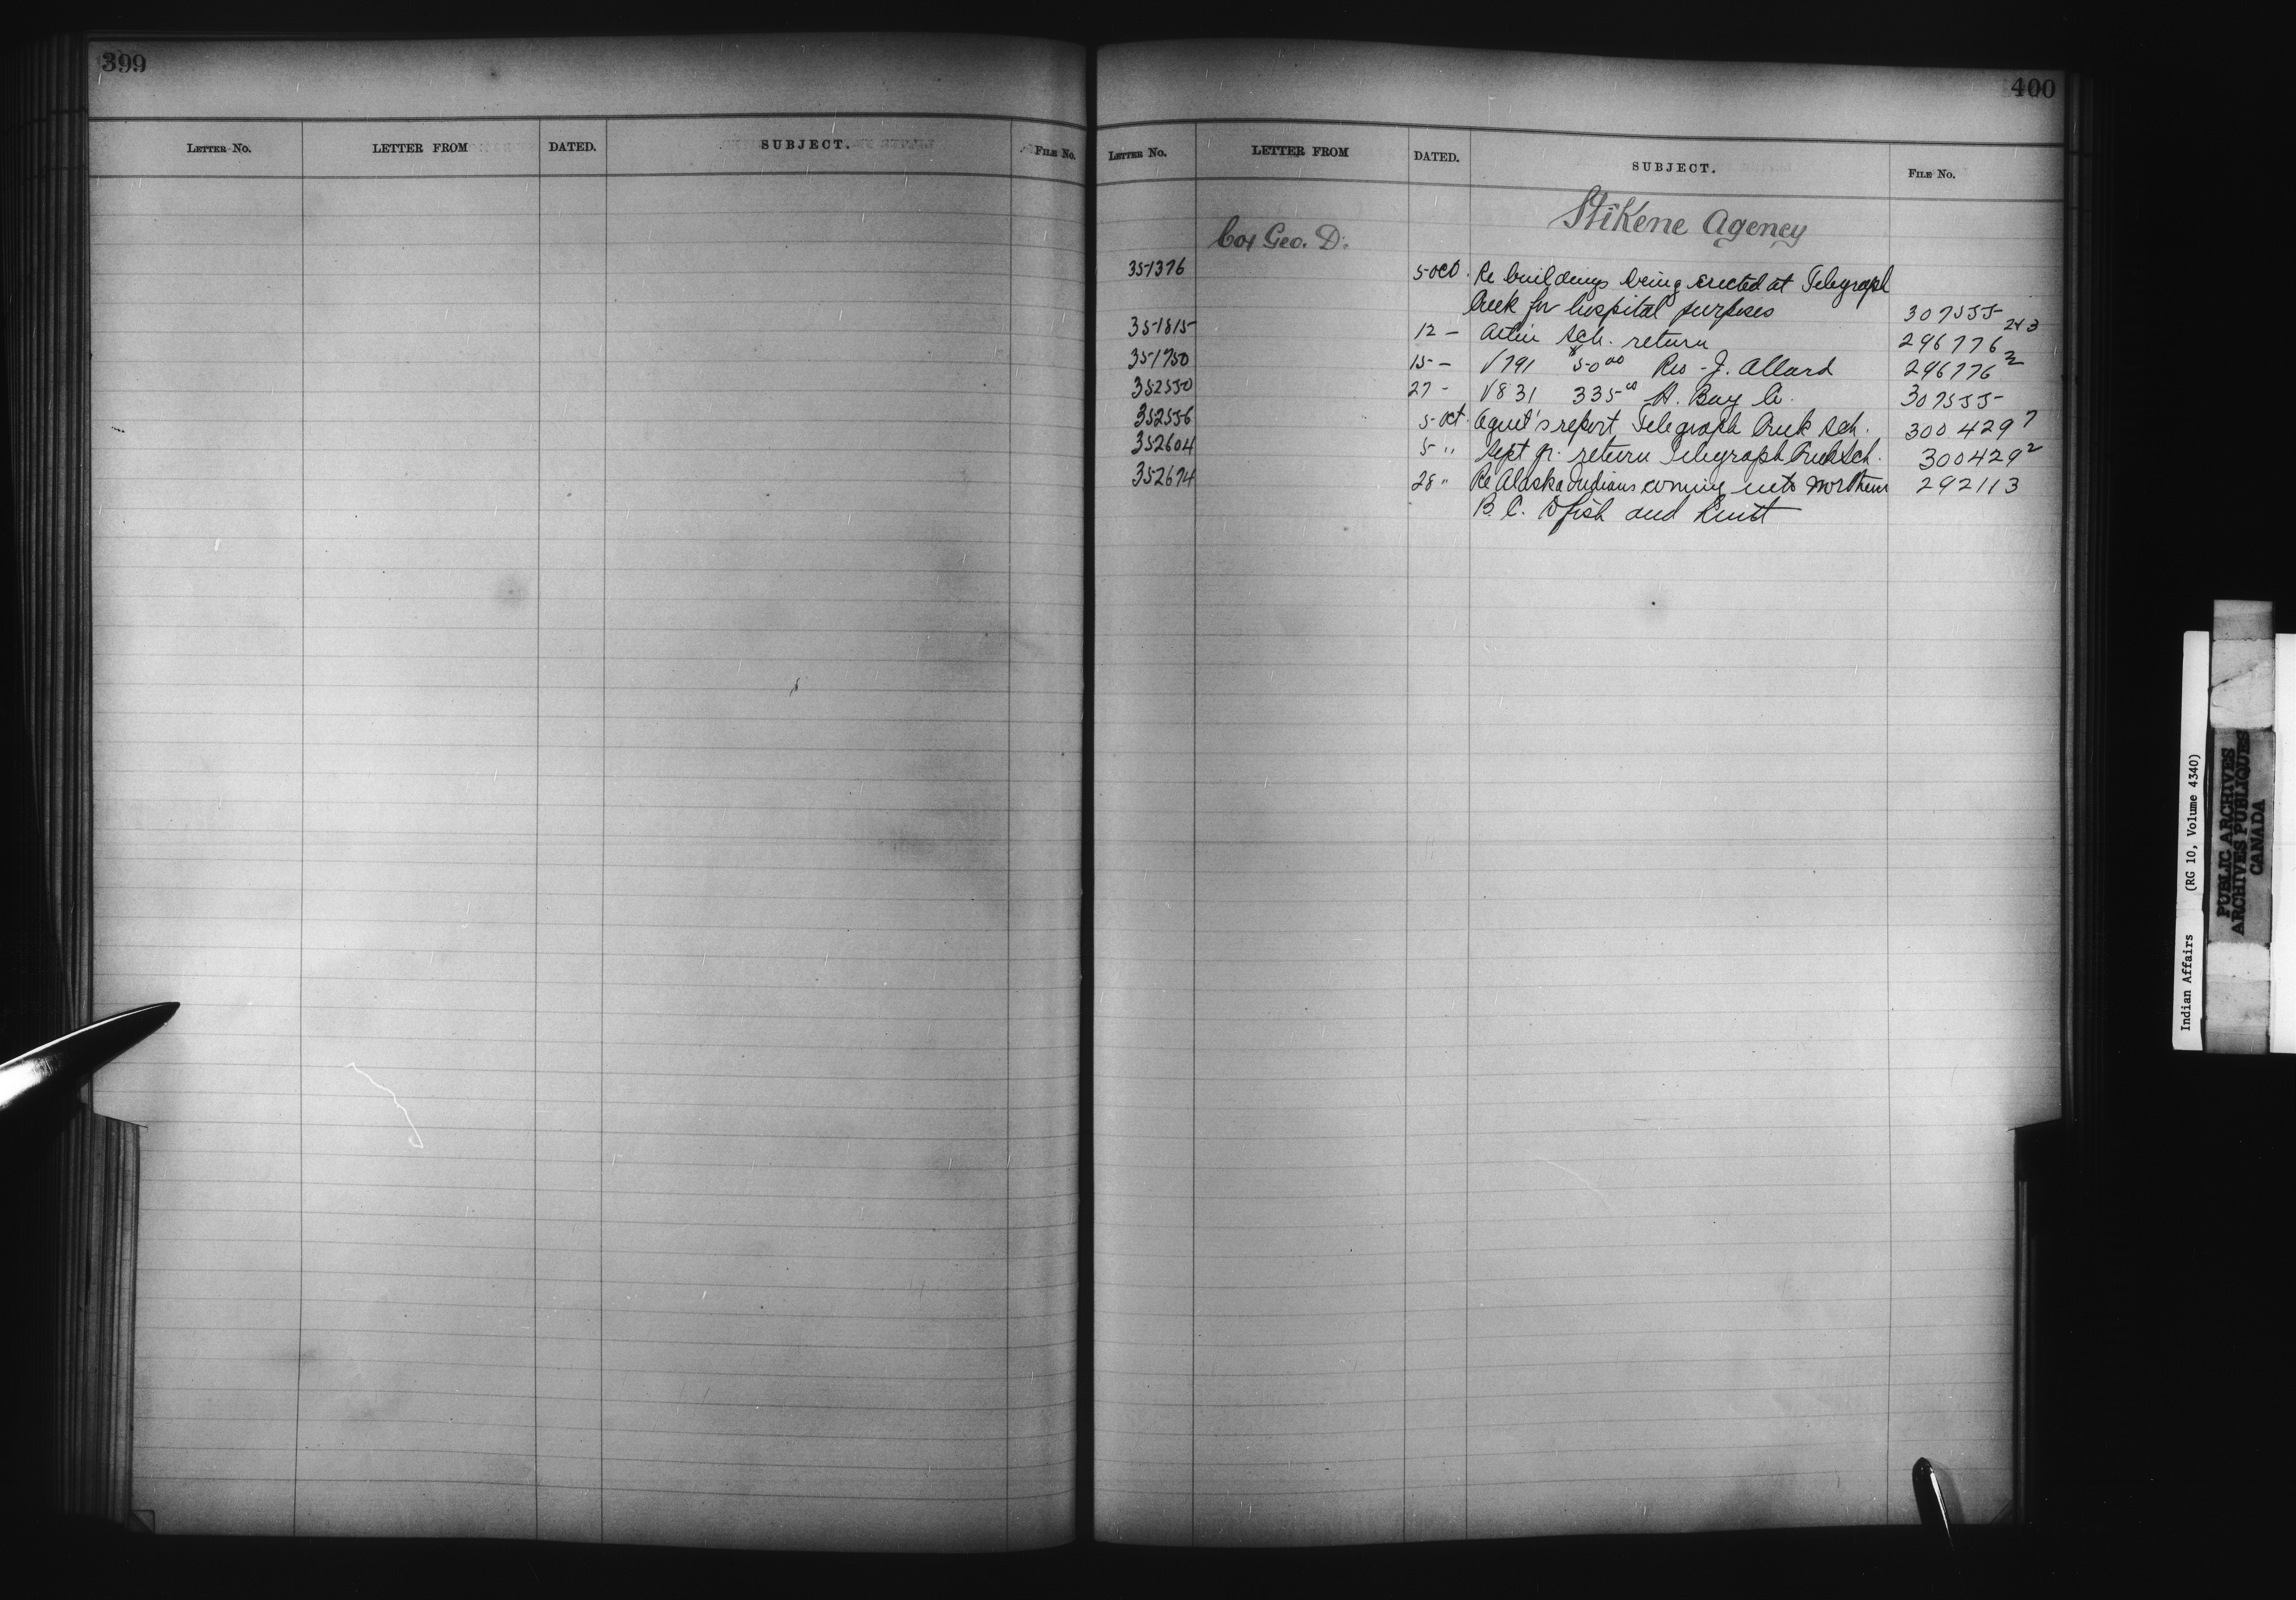 399
LETTER NO. LETTER FROM DATED. SUBJECT. FILE NO.
400
LETTER NO. LETTER FROM DATED. SUBJECT. FILE NO.
Stikene Agency
Cox Geo. D.
351376 5 Oct. Re buildings being erected at Telegraph
Creek for hospital purposes 307555
351815 12 - Atlin Sch. return 296776 2&3
351750 15 - V791 $50.00 Res - J. Allard 296776 2
352550 27 - V831 335.00 H. Bay Co. 307555
352556 5 Oct. Agent's report Telegraph Creek Sch. 300429 7
352604 5 " Sept qr. return Telegraph Creek Sch. 300429 2
352674 28 " Re Alaska Indians coming into Northern 292113
B.C. to fish and hunt
Indian Affairs (RG 10, Volume 4340)
PUBLIC ARCHIVES
ARCHIVES PUBLIQUES
CANADA